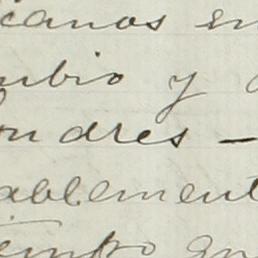 canos en
mbio y a
ondres —
ablement
tiempo en